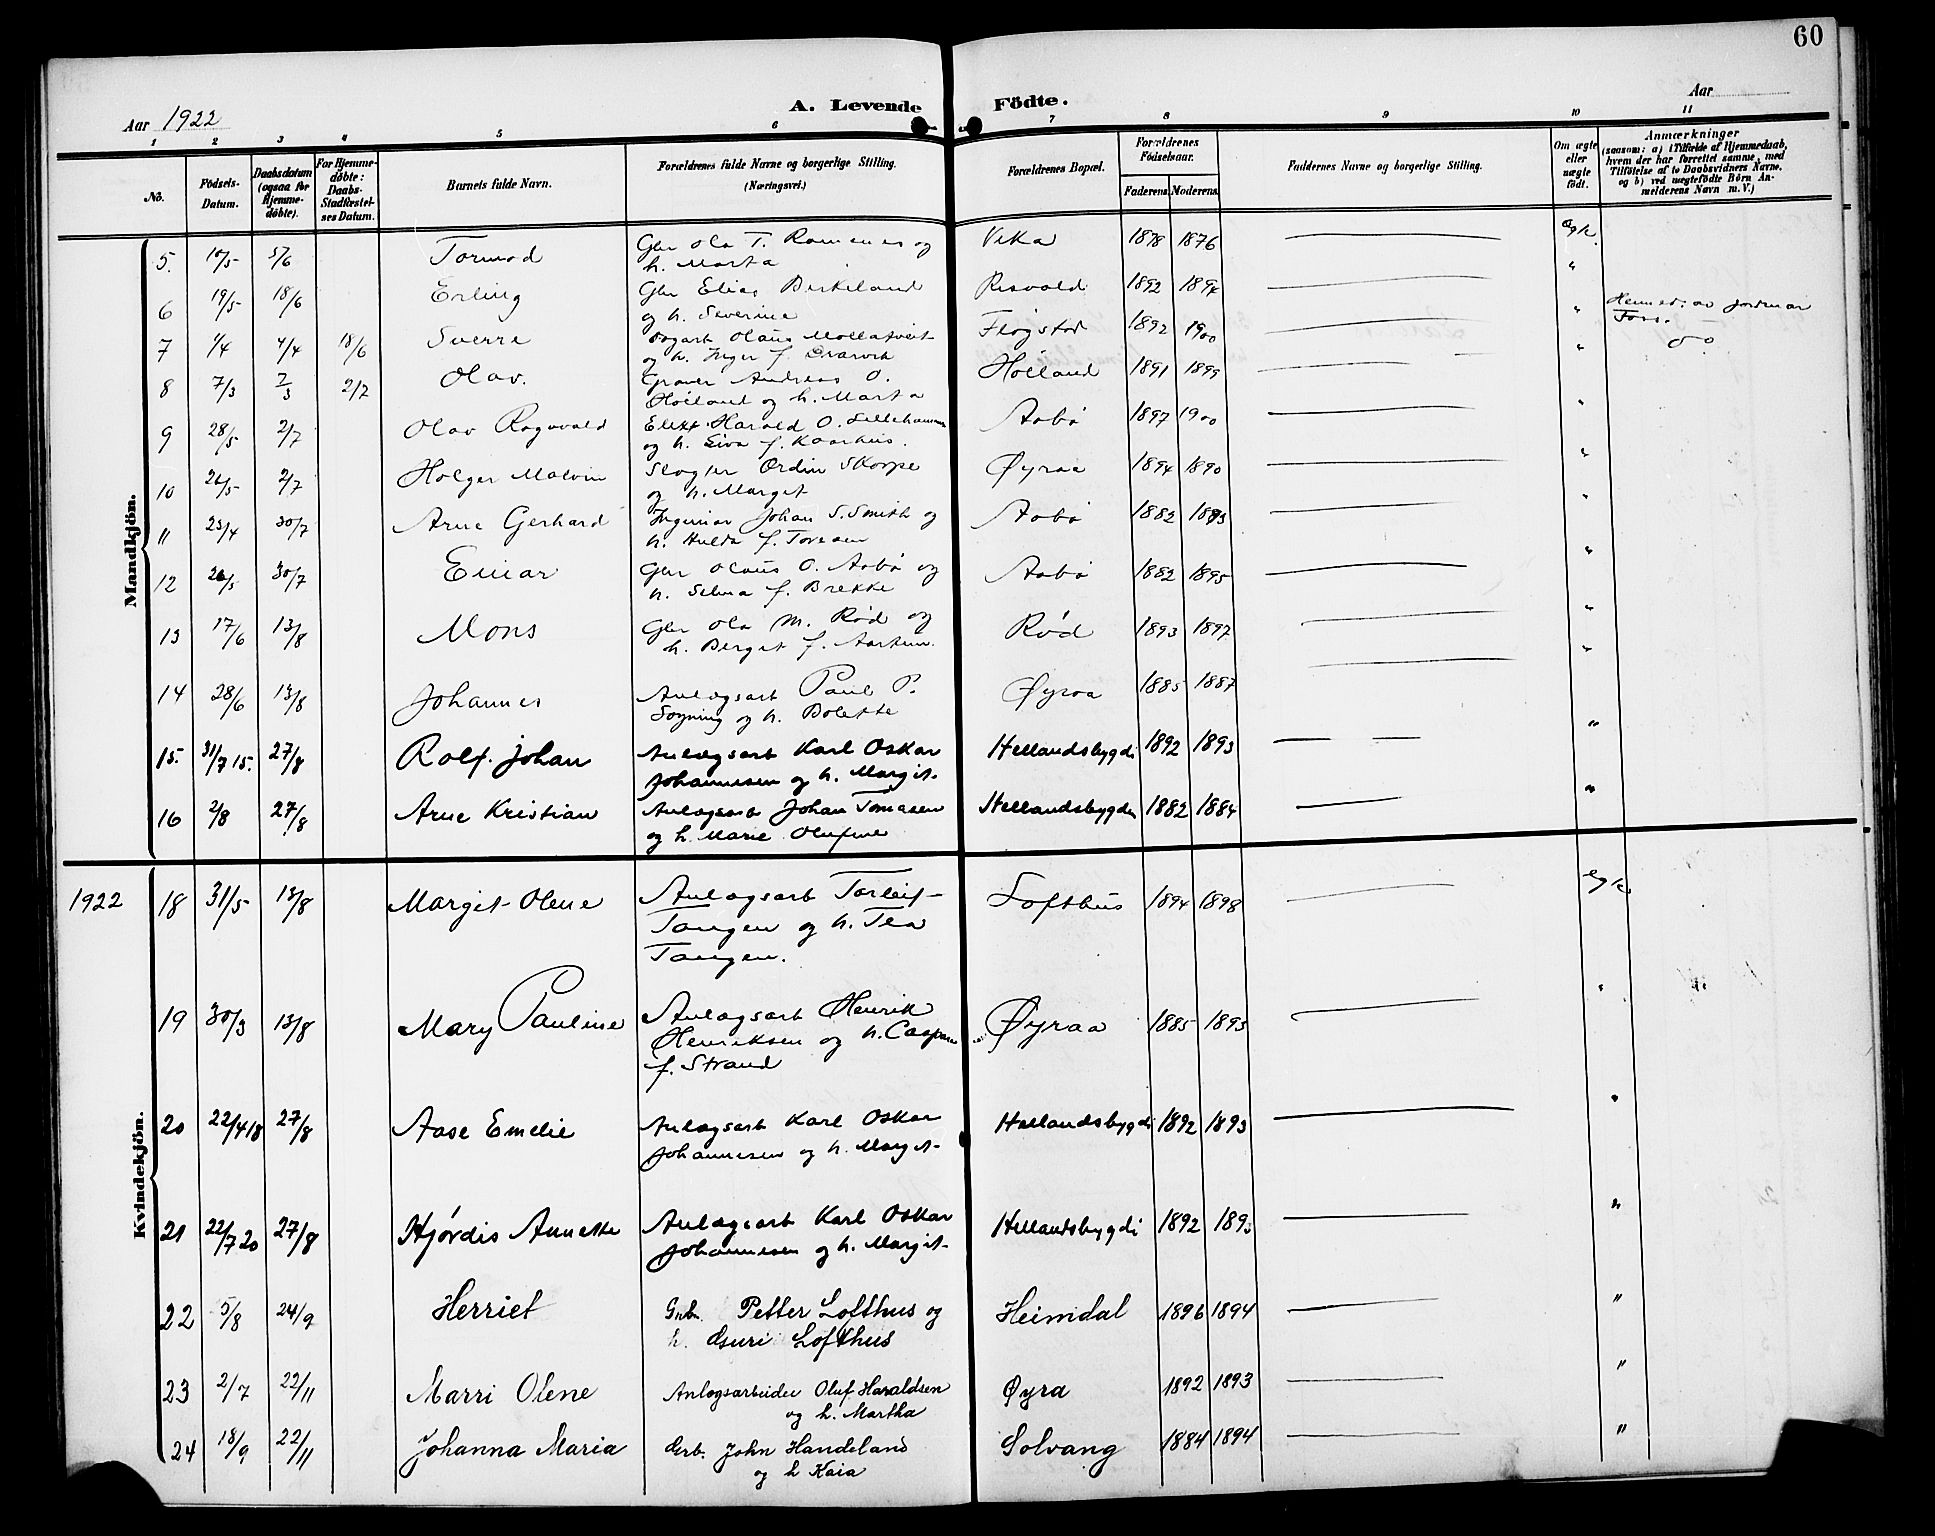 60
Aar 1922
A. Levende Födte.
Aar
1 2 3 4 5 6 7 8 9 10 11
No.
Födsels-Datum.
Daabsdatum (ogsaa for Hjemme-döbte).
For Hjemme-döbte: Daabs-Stadfæstel-ses Datum.
Barnets fulde Navn.
Forældrenes fulde Navne og borgerlige Stilling. (Næringsvei.)
Forældrenes Bopæl.
Forældrenes Födselsaar.
Faderens. Moderens.
Faddernes Navne og borgerlige Stilling.
Om ægte eller uægte födt.
Anmærkninger (saasom: a) i Tilfælde af Hjemmedaab, hvem der har forrettet samme, med Tilföielse af to Daabsvidners Navne, og b) ved uægtefödte Börn An-melderens Navn m. V.)
Mandkjön.
5. 10/5 5/6 Tormod Gbr Ola T. Ramsnes og Vika 1878 1876 Egte.
h. Marta
6 19/5 18/6 Erling Gbr Elias Birkeland Risvold 1892 1894 "
og h. Severine
7 1/4 4/4 18/6 Sverre Olaus Mollatveit Fløgstad 1892 1900 " Hjemmed. av Jordmor
og h. Inger f. Foss.
8 7/3 7/3 2/7 Olav. Andreas O. Høiland 1891 1899 "
Høiland og h. Marta
9 28/5 2/7 Olav Ragnvald Harald O. Lillehammer Aabø 1897 1900 "
og h. f. Kaarhus.
10 26/5 2/7 Holger Malvin Slagter Ordin Skorpe Øyraa 1894 1890 "
og h. Marget
11 23/4 30/7 Arne Gerhard Ingeniør Johan S. Smith og Aabø 1882 1883 "
h. Hulda f.
12 26/5 30/7 Einar Gbr Olaus O. Aabø og Aabø 1882 1895 "
h. Selma f. Brekke
13 17/6 13/8 Mons Gbr Ola M. Rød og Rød 1893 1897 "
h. Berget f. Aartun.
14 28/6 13/8 Johannes Anlægsarb Paul P. Øyraa 1885 1887 "
Sogning og h. Bolette
15. 31/7 15. 27/8 Rolf. Johan Anlægsarb Karl Oskar Hellandsbygdi 1892 1893 "
Johannesen og h. Margit
16 2/8 27/8 Arne Kristian Anlægsarb Johan Tomasen Hellandsbygdi 1882 1884 "
og h. Marie Olufine
1922
Kvindekjön.
18 31/5 13/8 Margit Olene Anlægsarb Torleif Lofthus 1894 1898 egte
Tangen og h. Tea
Tangen.
19 30/3 13/8 Mary Pauline Anlægsarb Henrik Øyraa 1885 1893 "
Henriksen og h. Caspara
f. Strand
20 22/4 18 27/8 Aase Emelie Anlægsarb Karl Oskar Hellandsbygdi 1892 1893 "
Johannesen og h. Margit
21 22/7 20 27/8 Hjørdis Annette Anlægsarb Karl Oskar Hellandsbygdi 1892 1893 "
Johannesen og h. Margit
22 5/8 24/9 Herriet Grb. Petter Lofthus og Heimdal 1896 1894 "
h. Guri Lofthus
23 2/7 22/11 Marri Olene Anlegsarbeider Oluf Haraldsen Øyra 1892 1893 "
og h. Martha
24 18/9 22/11 Johanna Maria Grb. John Handeland Solvang 1884 1894 "
og h Kaia